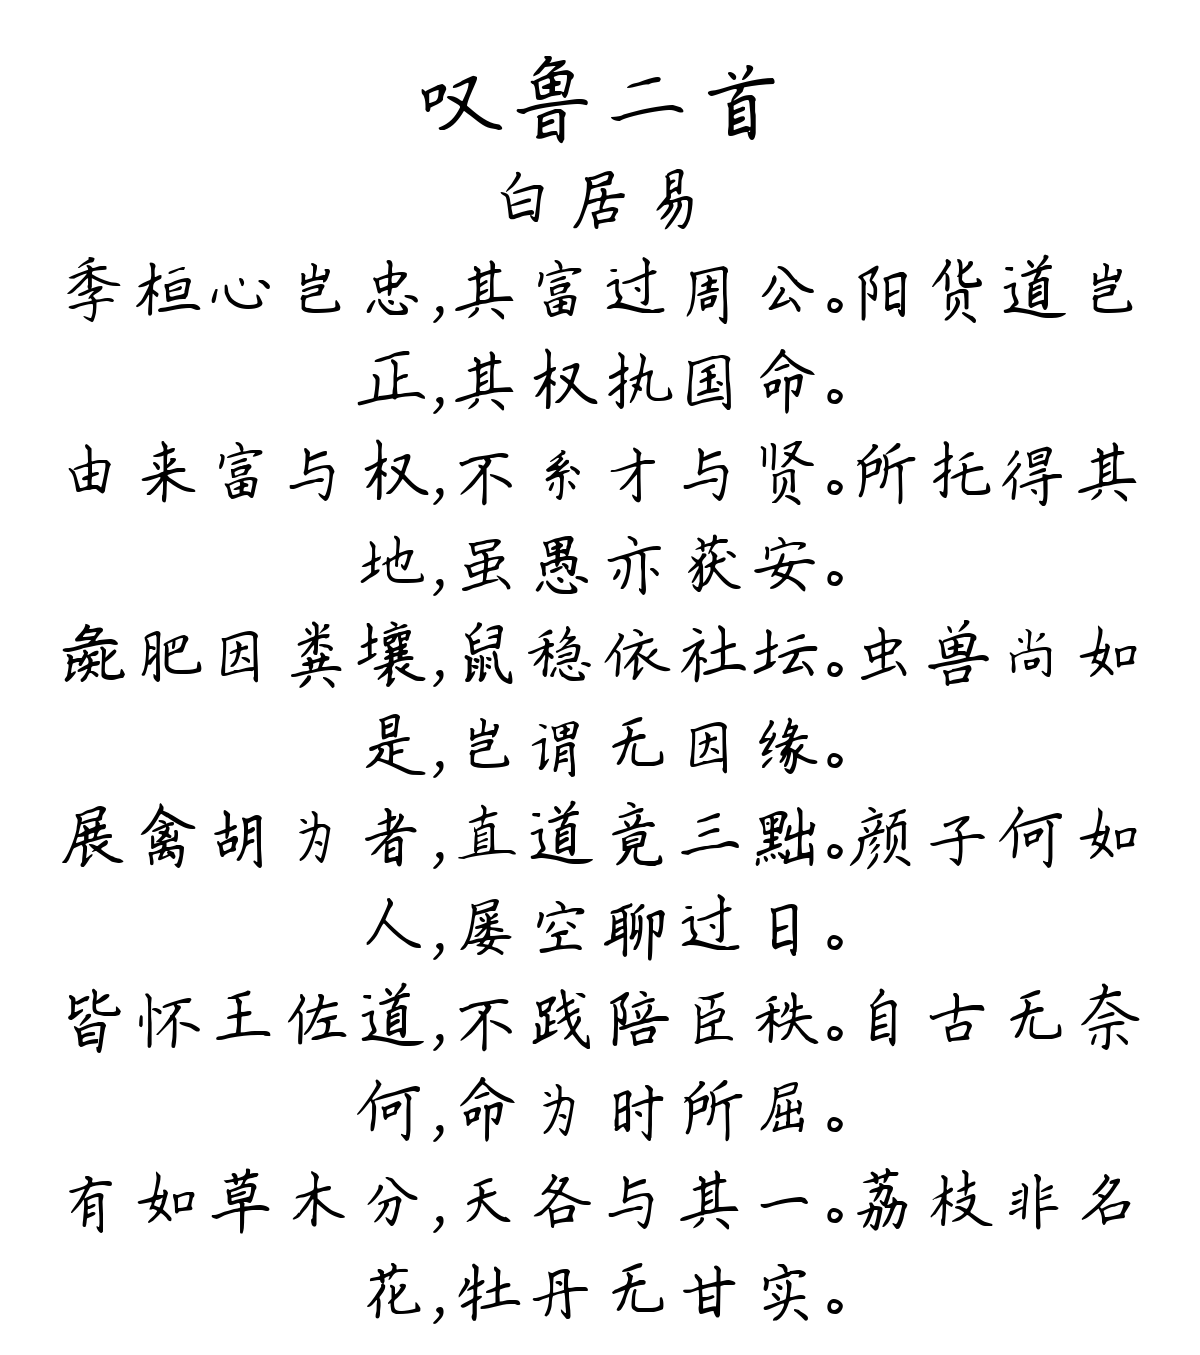 叹鲁二首
白居易
季桓心岂忠,其富过周公。阳货道岂
正,其权执国命。
由来富与权,不系才与贤。所托得其
地,虽愚亦获安。
彘肥因粪壤,鼠稳依社坛。虫兽尚如
是,岂谓无因缘。
展禽胡为者,直道竟三黜。颜子何如
人,屡空聊过日。
皆怀王佐道,不践陪臣秩。自古无奈
何,命为时所屈。
有如草木分,天各与其一。荔枝非名
花,牡丹无甘实。